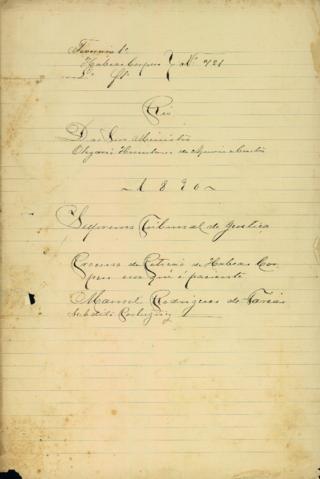 Habeas Corpus } Nº 721
Rio
D. do Snr Ministro
Olegario Herculano de Aquino e Castro
~ 1890 ~
Supremo Tribunal de Justiça
Processo de Petição de Habeas Cor
pus em que é paciente
Manoel Rodrigues de Farias
Subdito Portuguez